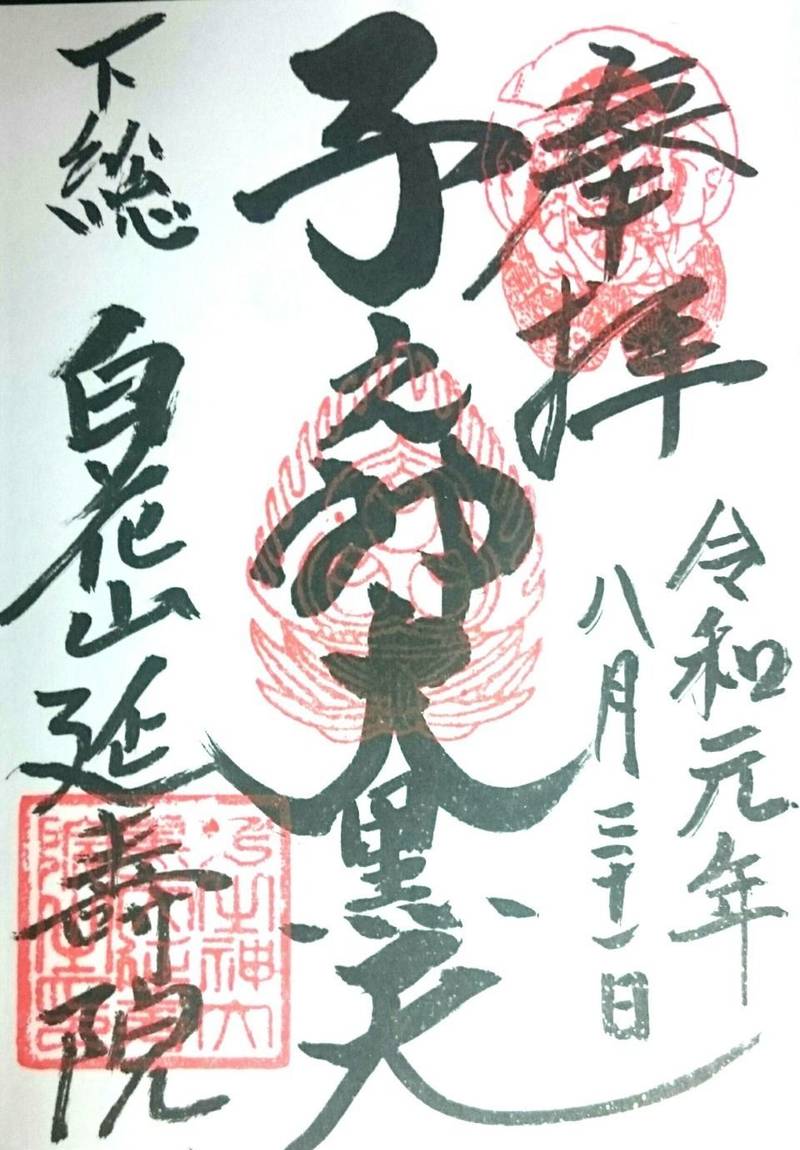 奉拝
令和元年
八月三十一日
子之神大黒天
下総 白花山延壽院